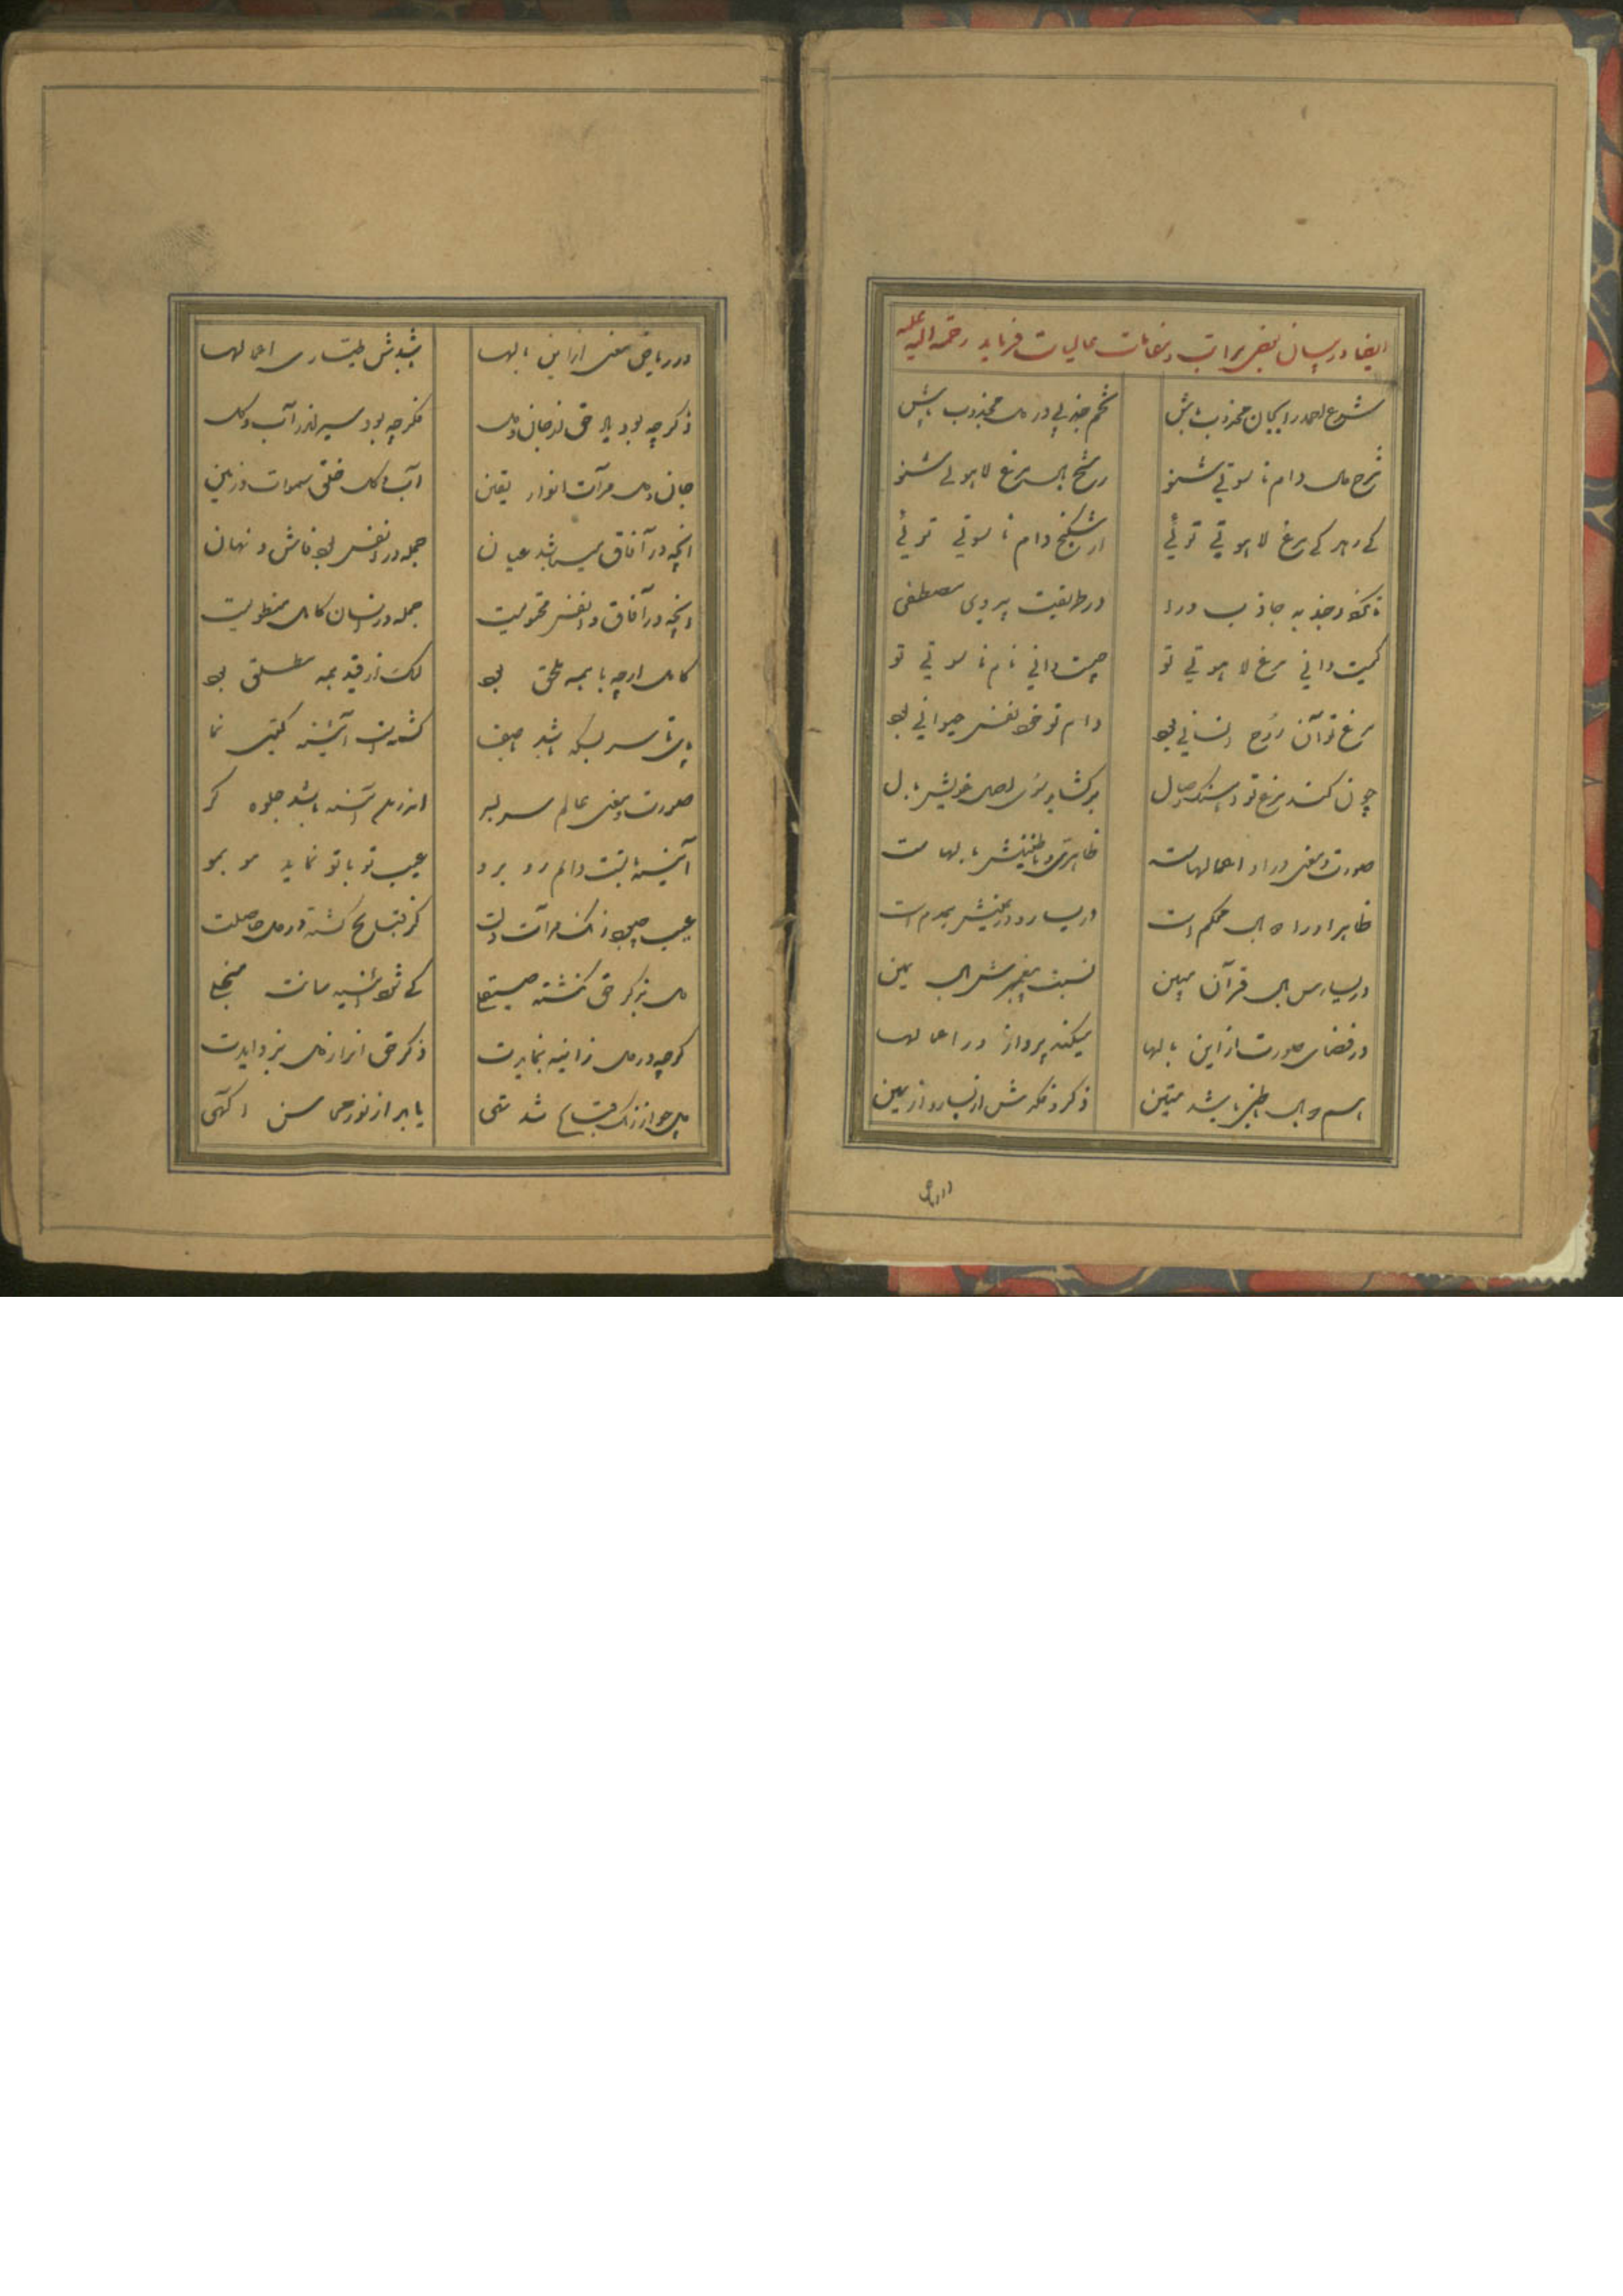 ایضا در بیان بعضی مراتب و مقامات عالیات فرماید رحمة الله علیه
شرع احمد را بجان مجذوب باش تخم جذبی در دل مجذوب پاش
شرح حال دام ناسوتی شنو رشح بال مرغ لاهوتی شنو
کی رهد کی مرغ لاهوتی توئی از شکنج دام ناسوتی توئی
تا نگردد جذبه جاذب ورا در طریقت پیروی مصطفی
کیست دانی مرغ لاهوتی تو چیست دانی دام ناسوتی تو
مرغ تو آن روح انسانی بود دام تو خود نفس حیوانی بود
چون کند مرغ تو آهنگ وصال برگشاید سوی اصل خویش بال
صورت و معنی ورا اعمالهاست ظاهری و باطنیش بالهاست
ظاهر او را دو بال محکم است در یسار و در یمینش همدم است
در یسارش بال قرآن مبین نسبت پیغمبرش بال یمین
در فضای صورت از این بالها میکند پرواز در اعمالها
هم دو بال باطنی باشد متین ذکر و فکرش از یسار و از یمین
در ریاض معنی از این بالها باشدش طیاری اعمالها
ذکر چه بود یاد حق از جان و دل فکر چه بود سیر اندر آب و گل
جان و دل مرآت انوار یقین آب و گل خلق سموات و زمین
آنچه در آفاق میباشد عیان جمله در انفس بود فاش و نهان
آنچه در آفاق و انفس محتویست جمله در انسان کامل منطویست
کامل ار چه با همه ملحق بود لیک از قید همه مطلق بود
پای تا سر بسکه باشد با صفا گشته است آئینه گیتی نما
صورت و معنی عالم سر بسر اندر آن آئینه باشد جلوه گر
آینه با تست دایم رو برو عیب تو با تو نماید مو بمو
عیب چبود زنگ مرآت دلت کز قبایح گشته در دل حاصلت
دل بذکر حق نگشته صیقلی کی شود آئینه سانت منجلی
گر چه در دل ز آینه بنمایدت ذکر حق آنرا ز دل بزدایدت
دل چو از زنگ قبایح شد تهی یابد از نور محاسن آگهی
در ریاض